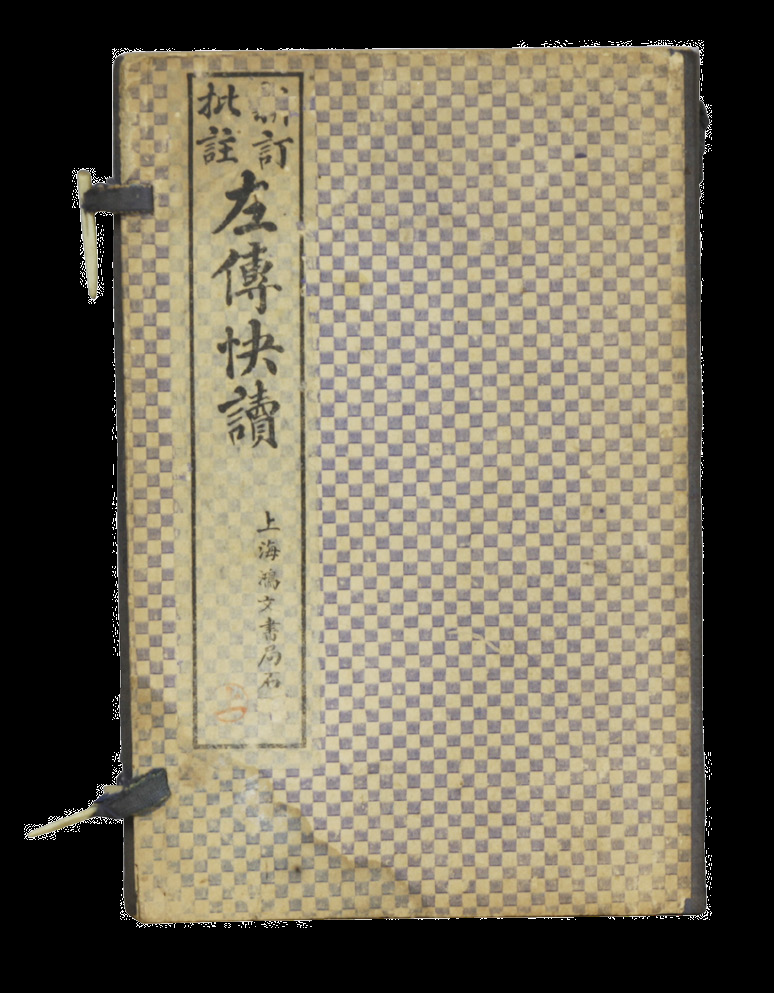 訂
批註
左傳快讀
上海鴻文書局石